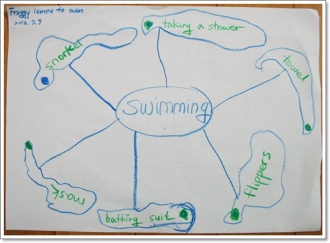 Froggy learns to swim
taking a shower
snorkel
towel
swimming
flippers
mask
bathing suit